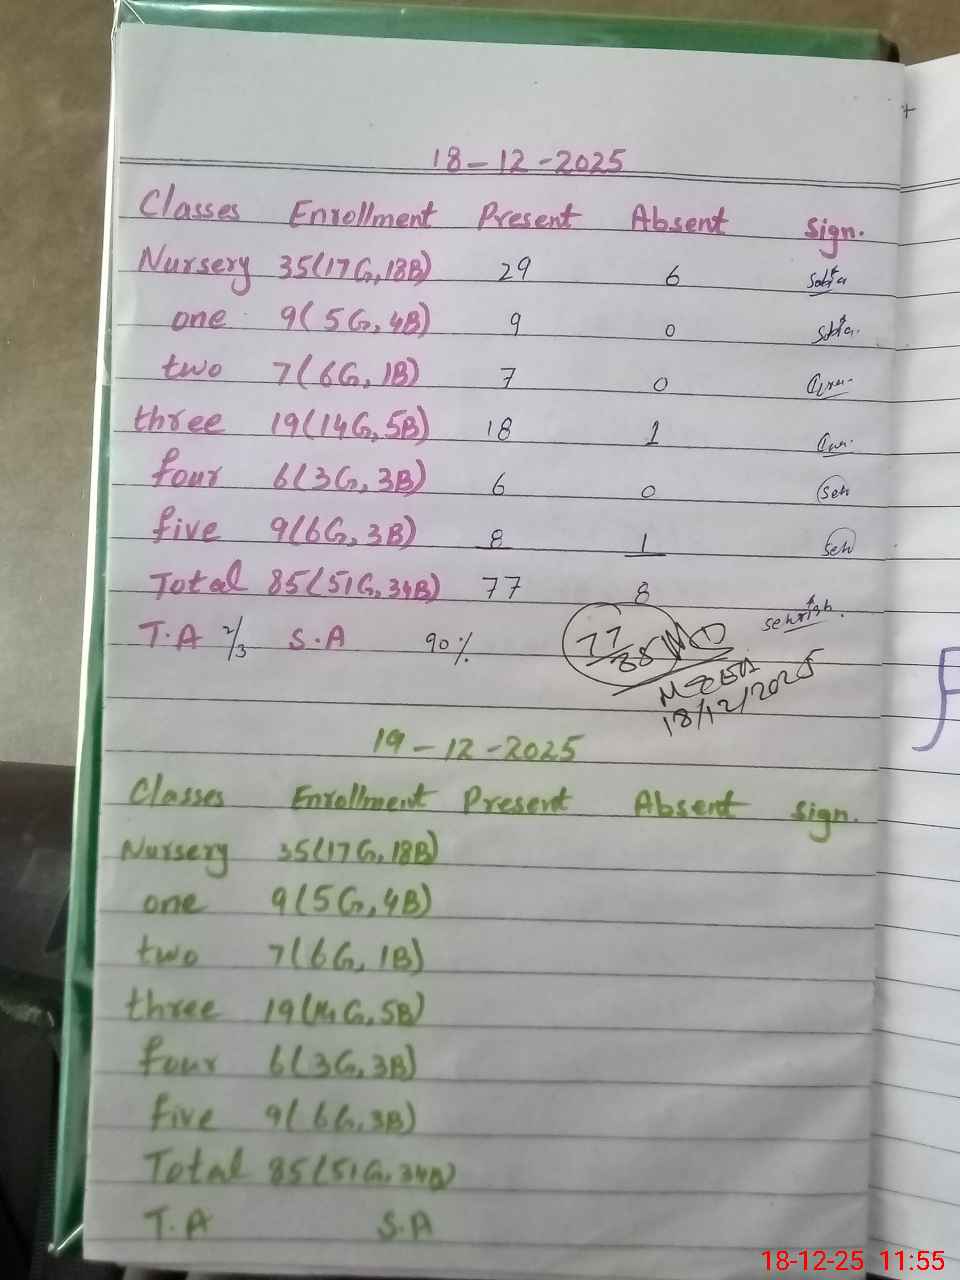 18-12-2025
Classes Enrollment Present Absent Sign.
Nursery 35(17G,18B) 29 6 Sobia
one 9(5G,4B) 9 0 Sobia
two 7(6G,1B) 7 0
three 19(14G,5B) 18 1
four 6(3G,3B) 6 0 Seh
five 9(6G,3B) 8 1 Seh
Total 85(51G,34B) 77 8 sehrish.
T.A 2/3 S.A 90%
77/85
18/12/2025
19-12-2025
Classes Enrollment Present Absent Sign.
Nursery 35(17G,18B)
one 9(5G,4B)
two 7(6G,1B)
three 19(14G,5B)
four 6(3G,3B)
five 9(6G,3B)
Total 85(51G,34B)
T.A S.A
18-12-25 11:55